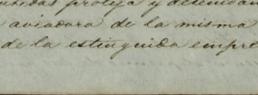 proteja y
aviadora de la misma
de la estinguida empre